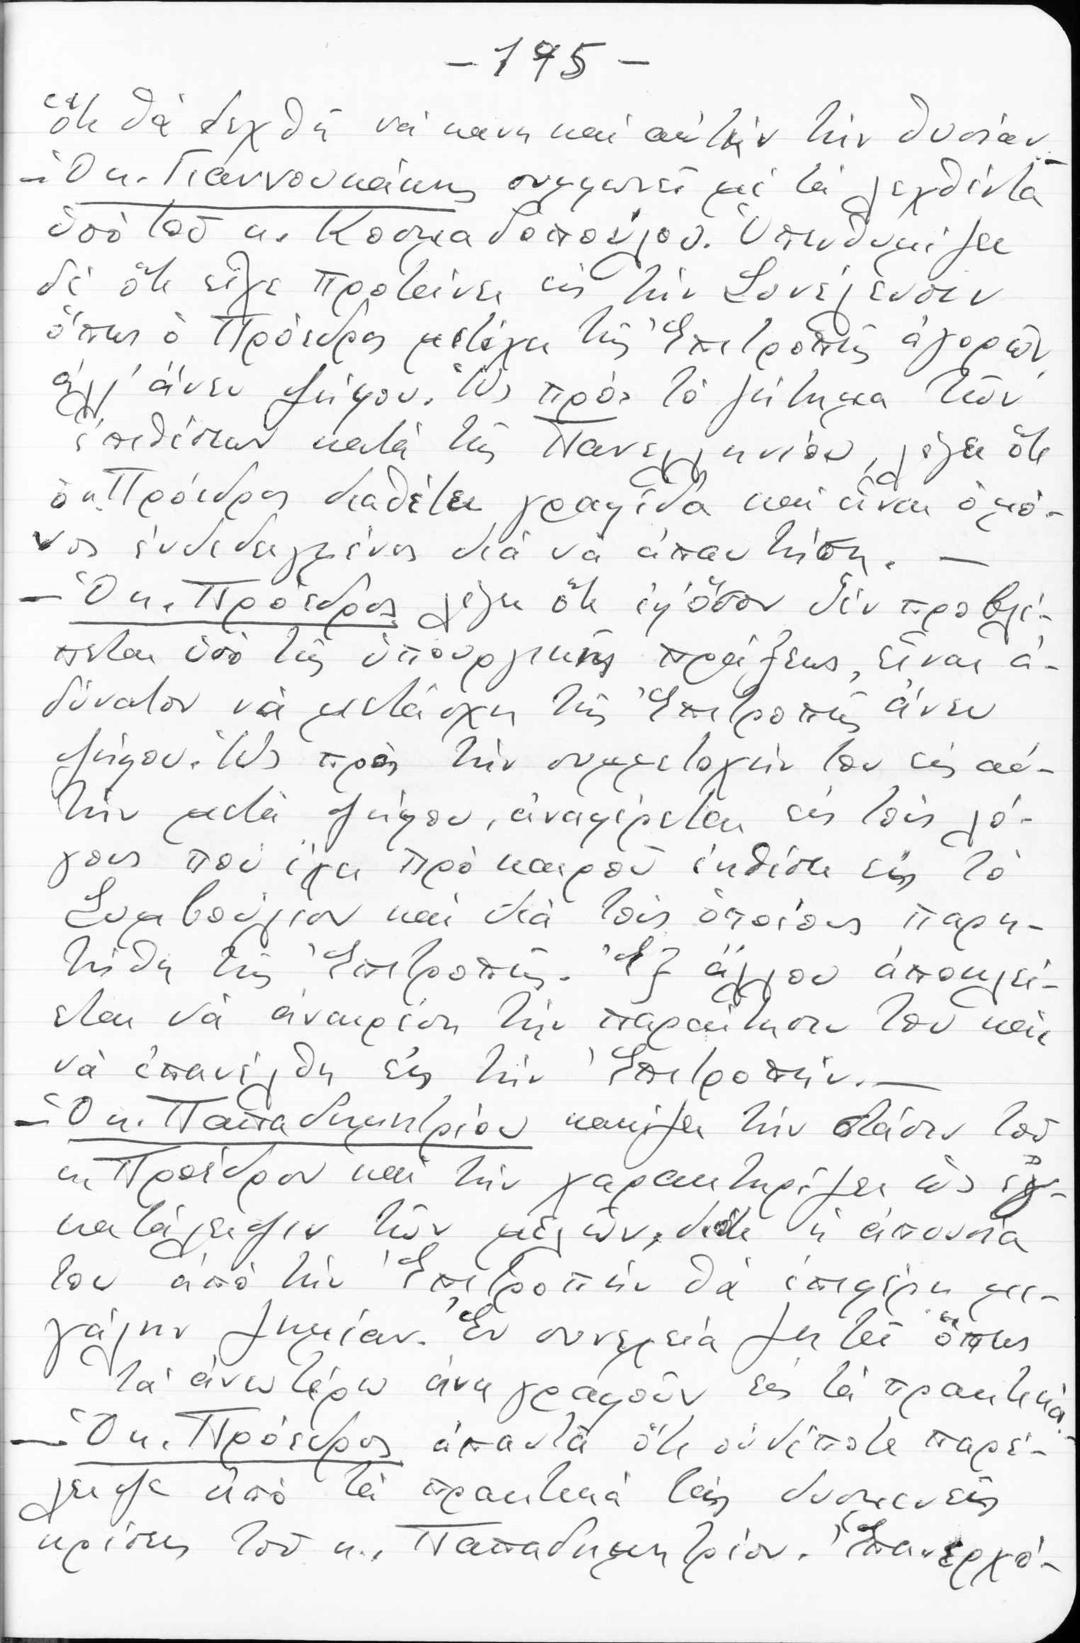 - 175 -
ὅτι θὰ δεχθῆ νὰ κάνη καὶ αὐτὴν τὴν θυσίαν.-
- Ὁ κ. Γιαννουκάκης συμφωνεῖ μὲ τὰ λεχθέντα
ὑπὸ τοῦ κ. Κοσμαδοπούλου. Ὑπενθυμίζει
δὲ ὅτι εἶχε προτείνει εἰς τὴν Συνέλευσιν
ὅπως ὁ Πρόεδρος μετέχη τῆς Ἐπιτροπῆς ἀγορῶν,
ἀλλ' ἄνευ ψήφου. Ὡς πρὸς τὸ ζήτημα τῶν
ἐπιθέσεων κατὰ τῆς Πανελληνίου, λέγει ὅτι
ὁ κ. Πρόεδρος διαθέτει γραφίδα καὶ εἶναι ὁ μό-
νος ἐνδεδειγμένος διὰ νὰ ἀπαντήση. —
- Ὁ κ. Πρόεδρος λέγει ὅτι ἐφ' ὅσον δὲν προβλέ-
πεται ὑπὸ τῆς ὑπουργικῆς πράξεως, εἶναι ἀ-
δύνατον νὰ μετάσχη τῆς Ἐπιτροπῆς ἄνευ
ψήφου. Ὡς πρὸς τὴν συμμετοχήν του εἰς αὐ-
τὴν μετὰ ψήφου, ἀναφέρεται εἰς τοὺς λό-
γους ποὺ ἔχει πρὸ καιροῦ ἐκθέσει εἰς τὸ
Συμβούλιον καὶ διὰ τοὺς ὁποίους παρη-
τήθη τῆς Ἐπιτροπῆς. Ἐξ ἄλλου ἀποκλεί-
εται νὰ ἀναιρέση τὴν παραίτησίν του καὶ
νὰ ἐπανέλθη εἰς τὴν Ἐπιτροπήν. —
- Ὁ κ. Παπαδημητρίου κακίζει τὴν στάσιν τοῦ
κ. Προέδρου καὶ τὴν χαρακτηρίζει ὡς ἐγ-
κατάλειψιν τῶν μελῶν, διότι ἡ ἀπουσία
του ἀπὸ τὴν Ἐπιτροπὴν θὰ ἐπιφέρη με-
γάλην ζημίαν. Ἐν συνεχεία ζητεῖ ὅπως
τὰ ἀνωτέρω ἀναγραφοῦν εἰς τὰ πρακτικά.-
- Ὁ κ. Πρόεδρος ἀπαντᾶ ὅτι οὐδέποτε παρέ-
λειψε ἀπὸ τὰ πρακτικὰ τὰς δυσμενεῖς
κρίσεις τοῦ κ. Παπαδημητρίου. Ἐπανερχό-